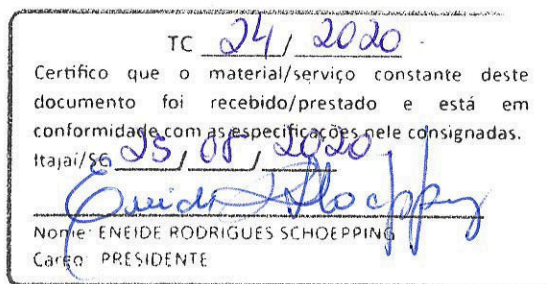 TC 24 / 2020
Certifico que o material/serviço constante deste
documento foi recebido/prestado e está em
conformidade com as especificações nele consignadas.
Itajaí/SC 25 / 05 / 2020
Nome: ENEIDE RODRIGUES SCHOEPPING
Cargo: PRESIDENTE